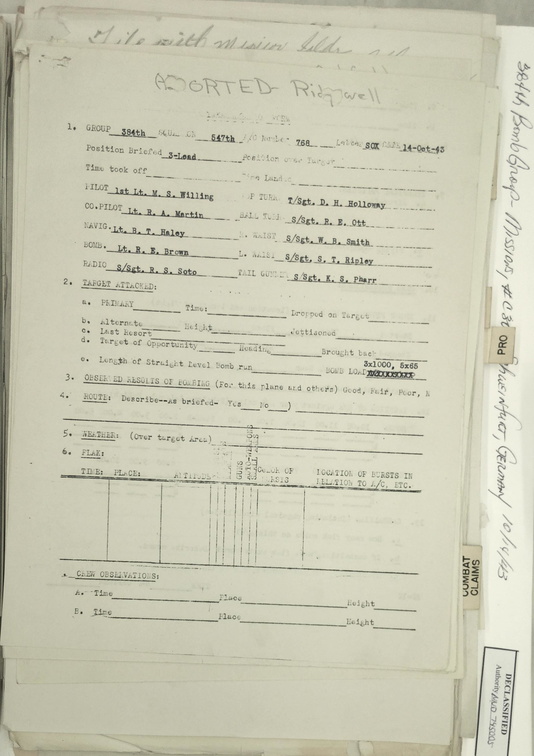 File with mission
ABORTED - Ridgwell
1. GROUP 384th 547th A/C Number 768 Letter SOX DATE 14-Oct-43
Position Briefed 3-Lead Position over Target
Time took off Time Landed
PILOT 1st Lt. M. S. Willing TOP TURR. T/Sgt. D. H. Holloway
CO.PILOT Lt. R. A. Martin BALL TURR S/Sgt. E. E. Ott
NAVIG. Lt. R. T. Haley R. WAIST S/Sgt. W. B. Smith
BOMB. Lt. R. E. Brown L. WAIST S/Sgt. S. T. Ripley
RADIO S/Sgt. R. S. Soto TAIL GUNNER S/Sgt. K. S. Pharr
2. TARGET ATTACKED:
a. PRIMARY Time: Dropped on Target
b. Alternate Height Jettisoned
c. Last Resort
d. Target of Opportunity Heading Brought back
3x1000, 5x65
e. Length of Straight Level Bomb run BOMB LOAD
3. OBSERVED RESULTS OF BOMBING (For this plane and others) Good, Fair, Poor, N
4. ROUTE: Describe--As briefed- Yes No )
5. WEATHER: (Over target Area)
6. FLAK:
TIME: PLACE: ALTITUDE COLOR OF BURSTS LOCATION OF BURSTS IN
RELATION TO A/C, ETC.
CREW OBSERVATIONS:
A. Time Place Height
B. Time Place Height
384th Bomb Group Mission, Schweinfurt, Germany 10/14/43
PRO
COMBAT
CLAIMS
DECLASSIFIED
Authority NND 745005